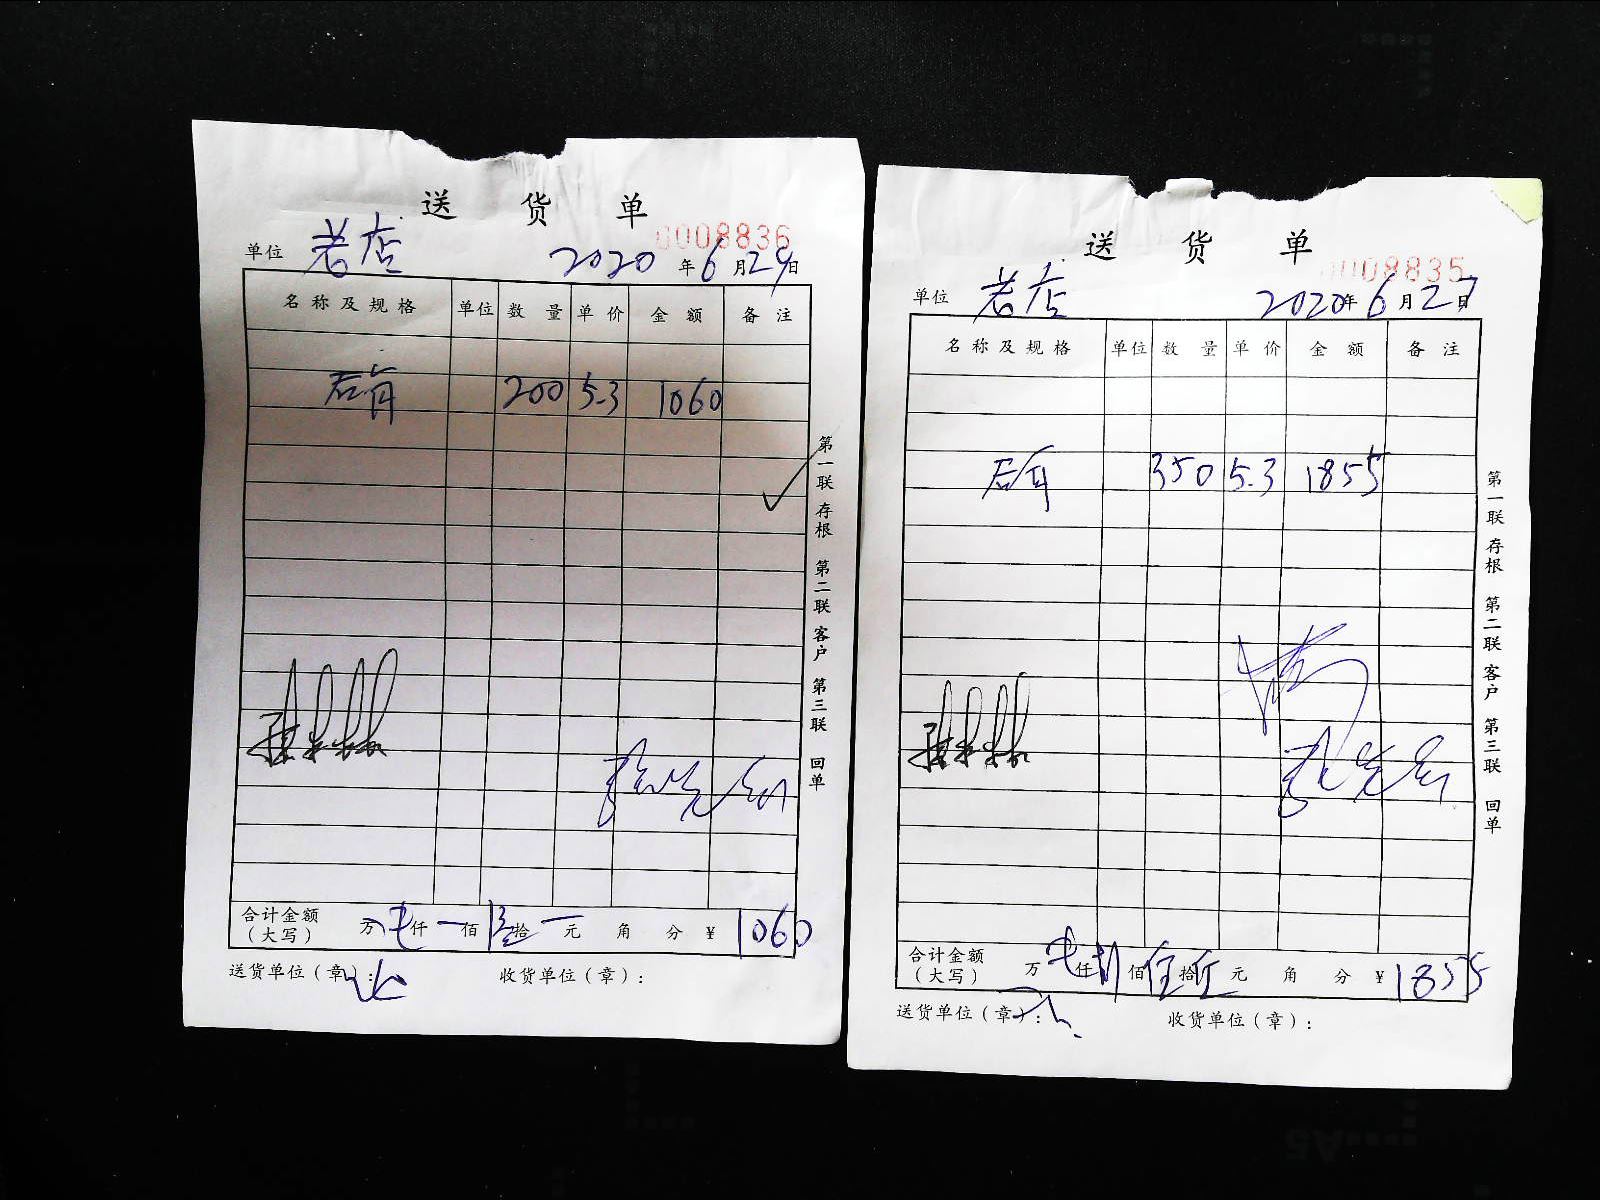 送 货 单
0008836
单位 老店 2020 年 6 月 29 日
名称及规格 单位 数量 单价 金额 备注
200 5.3 1060
第一联 存根 第二联 客户 第三联 回单
合计金额(大写) 万 仟 一 佰 拾 一 元 角 分 ¥ 1060
送货单位(章): 收货单位(章):
送 货 单
0008835
单位 老店 2020 年 6 月 27 日
名称及规格 单位 数量 单价 金额 备注
350 5.3 1855
第一联 存根 第二联 客户 第三联 回单
合计金额(大写) 万 仟 佰 伍 拾 伍 元 角 分 ¥ 1855
送货单位(章): 收货单位(章):